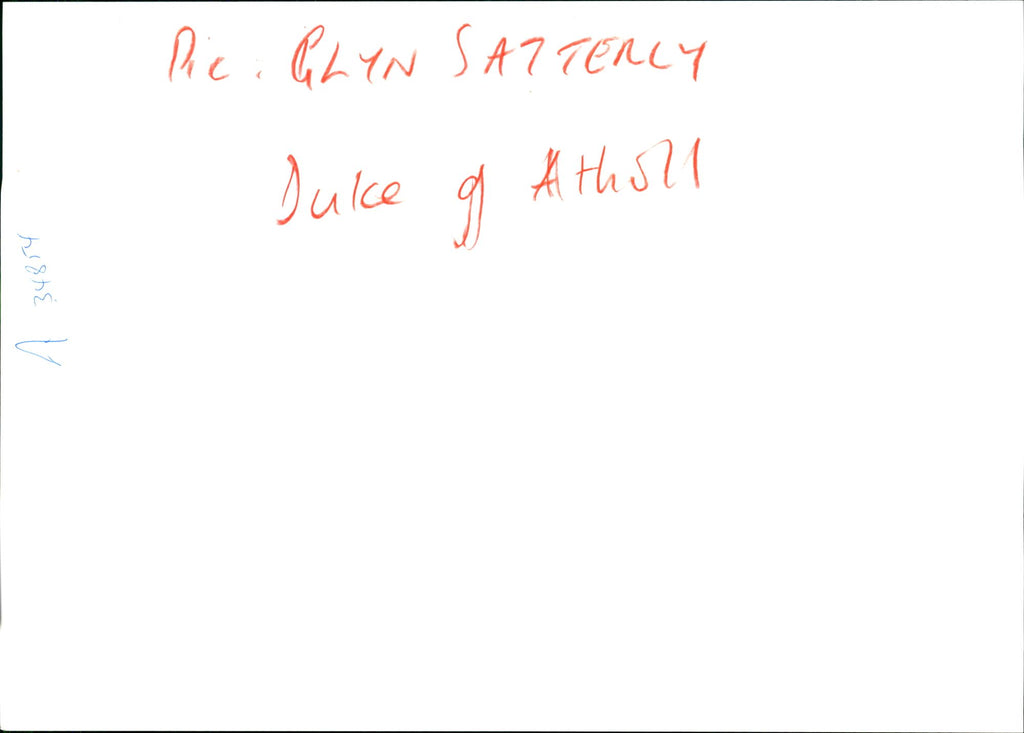 Pic: GLYN SATTERLY
Duke of Atholl
A 34854